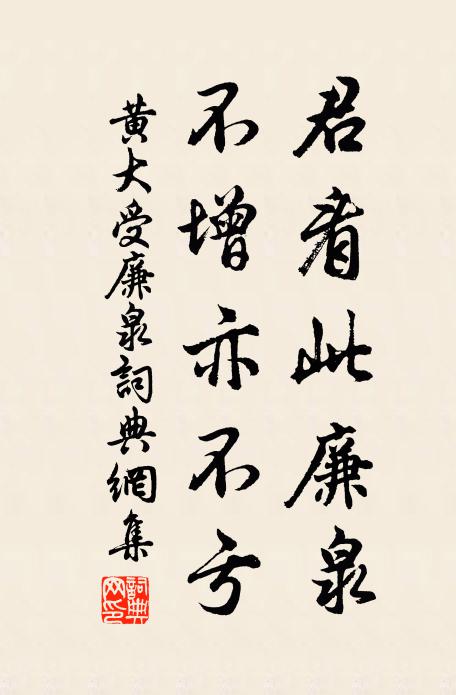 君看此廉泉
不增亦不亏
黄大受廉泉詞典網集
詞典网印